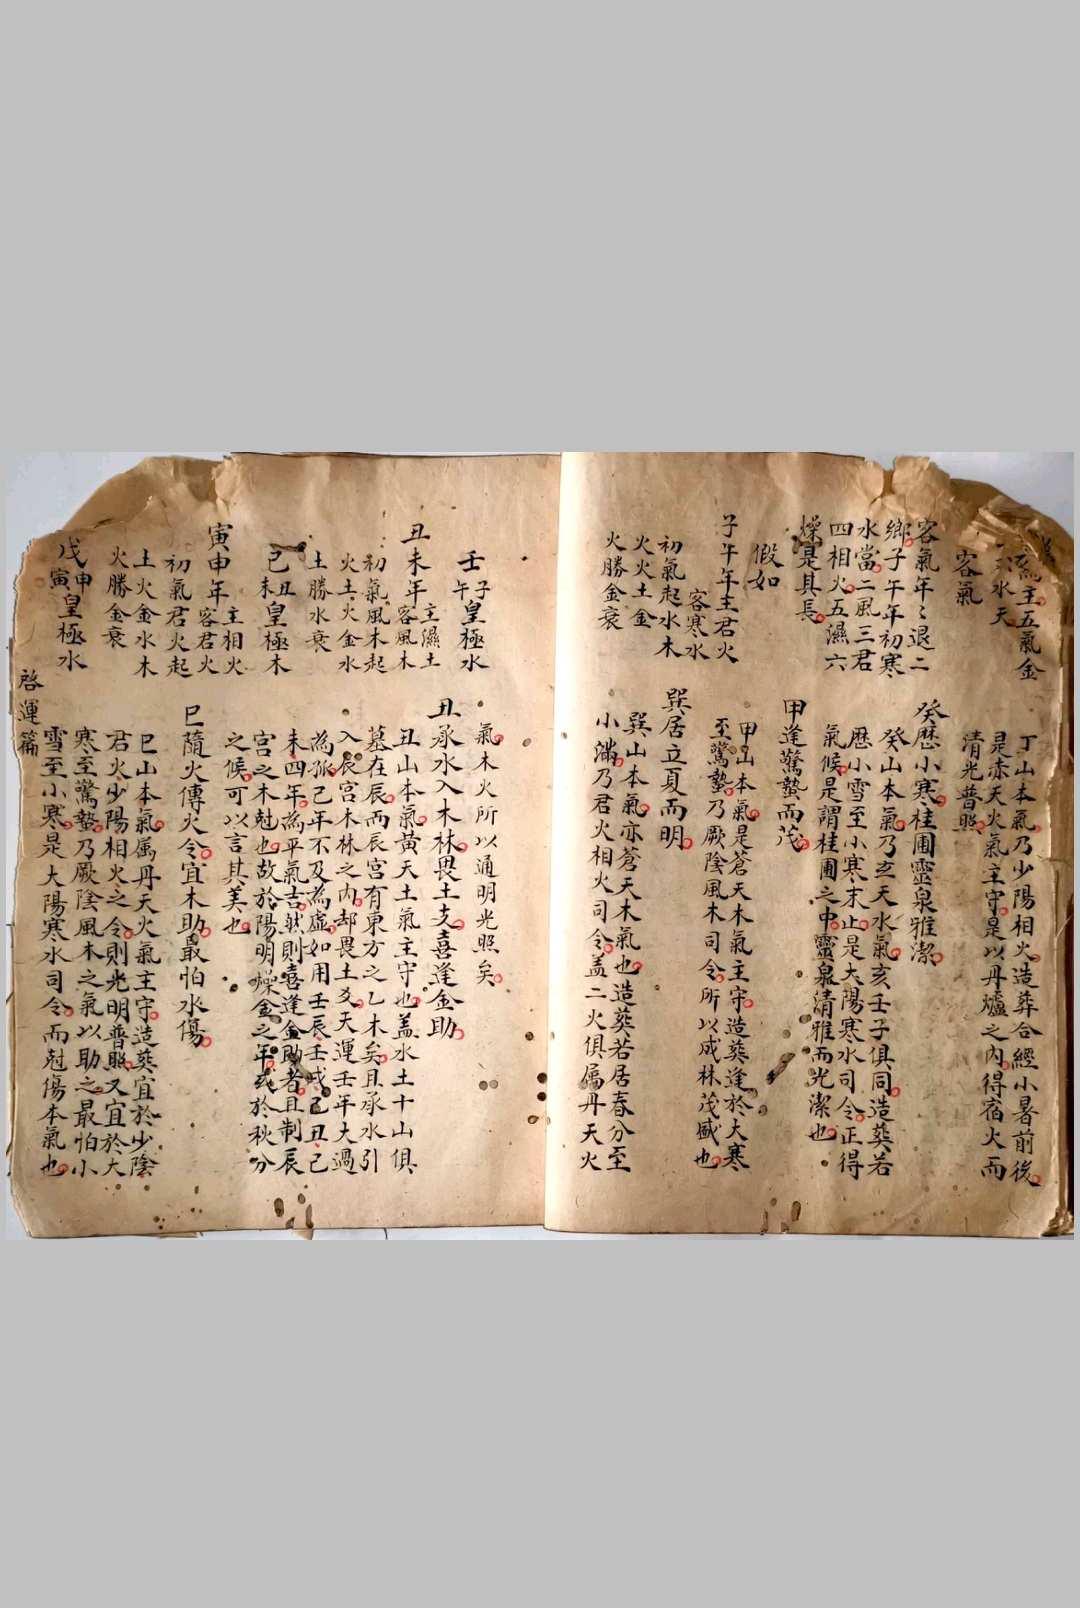 為主五氣金
六水天
客氣
客氣年〻退二
鄉子午年初寒
水當二風三君
四相火五濕六
燥是其長
假如
子午年主君火
客寒水
初氣起水木
火火土金
火勝金衰
丁山本氣乃少陽相火造葬合經小暑前後
是赤天火氣主守是以丹爐之內得宿火而
清光普照
癸歷小寒桂圃靈泉雅潔
癸山本氣乃玄天水氣亥壬子俱同造葬若
歷小雪至小寒末止是大陽寒水司令正得
氣候是謂桂圃之中靈泉清雅而光潔也
甲逢驚蟄而茂
甲山本氣是蒼天木氣主守造葬逢於大寒
至驚蟄乃厥陰風木司令所以成林茂盛也
巽居立夏而明
巽山本氣亦蒼天木氣也造葬若居春分至
小滿乃君火相火司令盖二火俱属丹天火
壬子午皇極水
丑未年主濕土
客風木
初氣風木起
火土火金水
土勝水衰
己丑未皇極木
寅申年主相火
客君火
初氣君火起
土火金水木
火勝金衰
戊申寅皇極水
氣木火所以通明光照矣
丑承水入木林畏土支喜逢金助
丑山本氣黃天土氣主守也盖水土十山俱
墓在辰而辰宮有東方之乙木矣且承水引
入辰宮木林之內却畏土爻天運壬年大過
為孤己年不及為虛如用壬辰壬戌己丑己
未四年為平氣吉然則喜逢金助者且制辰
宮之木尅也故於陽明燥金之年或於秋分
之候可以言其美也
巳隨火傳火令宜木助最怕水傷
巳山本氣属丹天火氣主守造葬宜於少陰
君火少陽相火之令則光明普照又宜於大
寒至驚蟄乃厥陰風木之氣以助之最怕小
雪至小寒是大陽寒水司令而尅傷本氣也
啓運篇